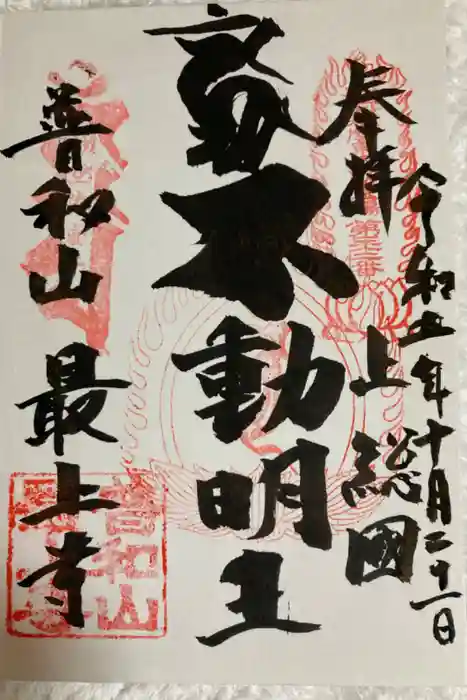 令和五年十月二十一日
奉拝
上総國
不動明王
普和山
最上寺
普和山
最上寺